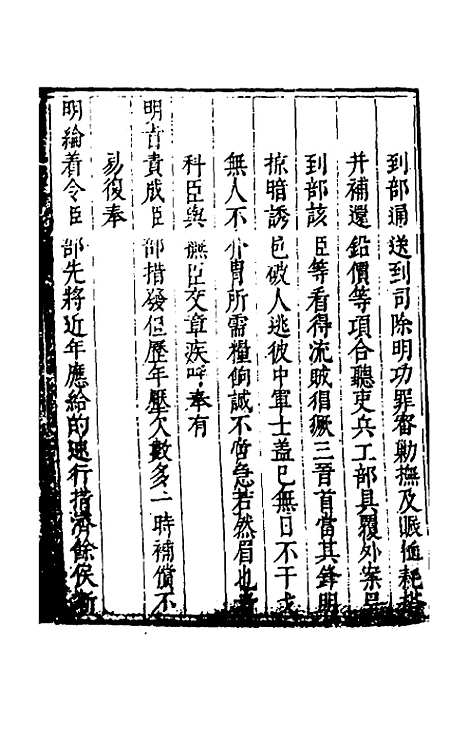 到部通送到司除明功罪審勦撫及賑恤耗
并補還鉛價等項合聽吏兵工部具覆外案呈
到部該臣等看得流賊猖獗三晉首當其鋒明
掠暗誘邑破人逃彼中軍士蓋已無日不干戈
無人不介冑所需糧餉誠不啻急若然眉也
科臣與撫臣交章疾呼奉有
明旨責成臣部措發但歷年壓欠數多一時補償不
易復奉
明綸着令臣部先將近年應給的速行措濟餘俟